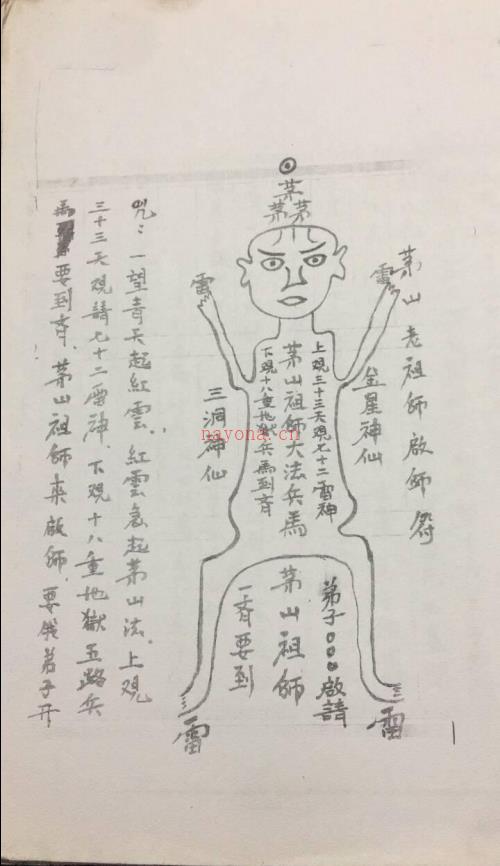 茅山老祖師啟師符
茅
茅茅
雷
雷
金星神仙
上观三十三天观七十二雷神
茅山祖師大法兵馬
下观十八重地獄兵馬到齊
三洞神仙
弟子〇〇〇啟請
茅山祖師
一齊要到
雷
雷
咒：一望青天起紅雲，紅雲蓋起茅山法，上观
三十三天观請七十二雷神，下观十八重地獄五路兵
馬要到齊，茅山祖師來啟師，要俄弟子开
nayona.cn